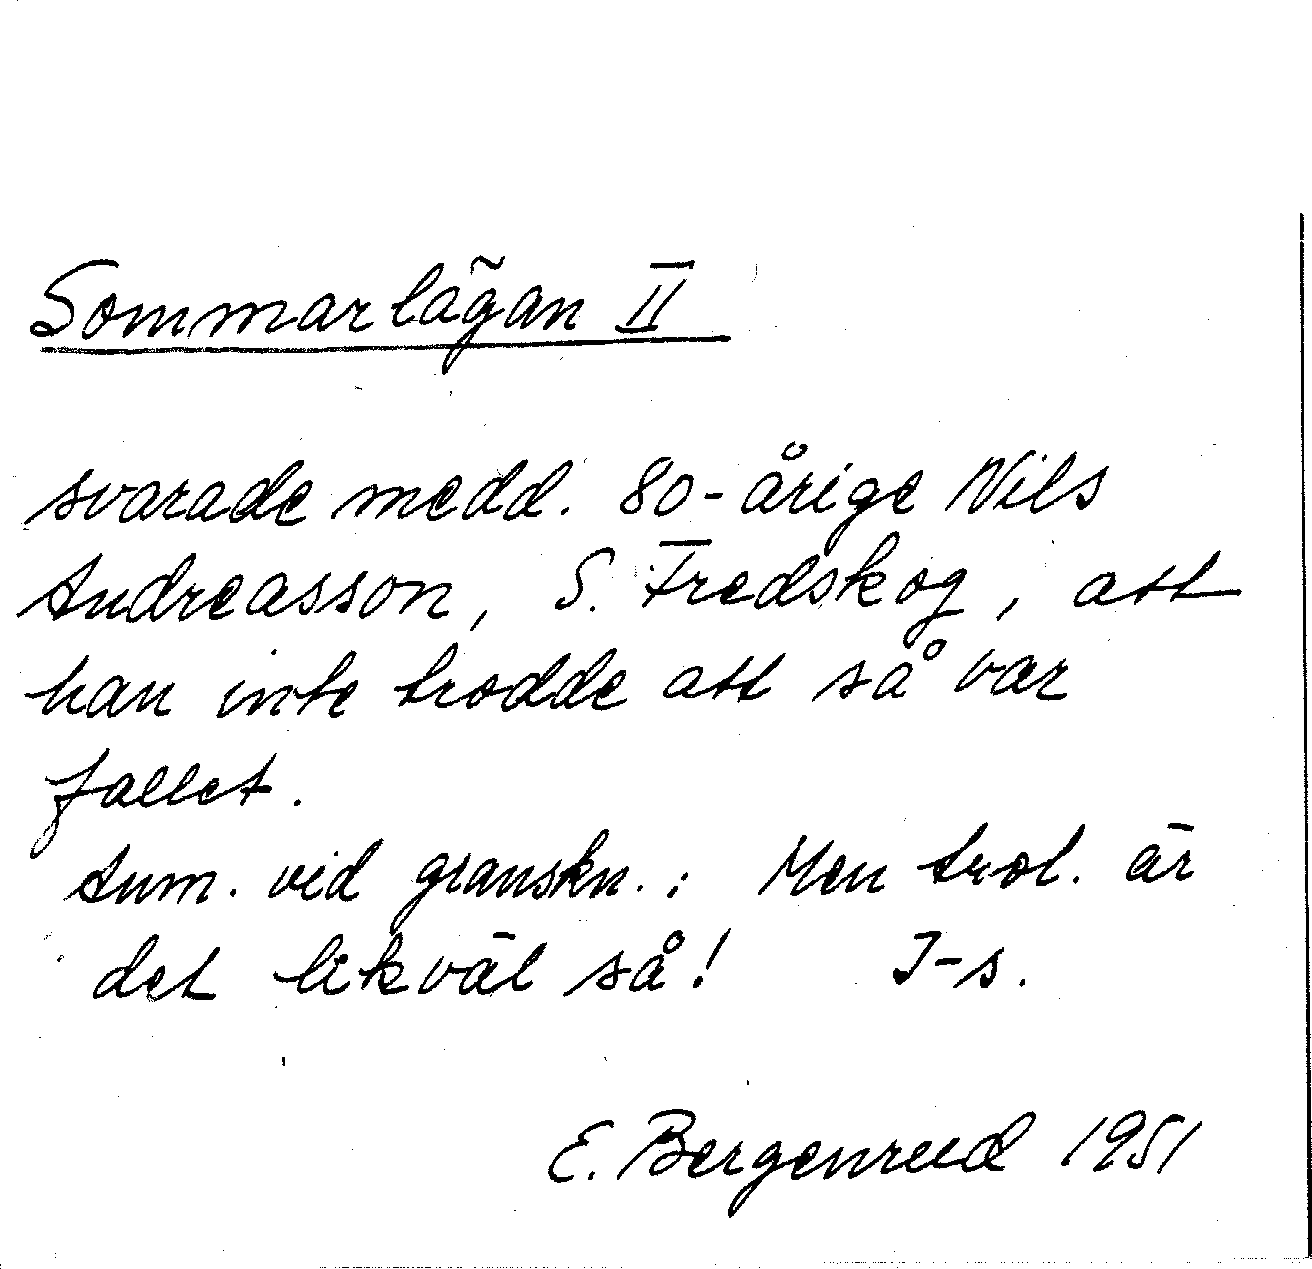 Sommarlägan II
svarade medd. 80-årige Nils
Andreasson, S. Fredskog, att
han inte trodde att så var
fallet.
Anm. vid granskn.: Men trol. är
det likväl så! I-s.
E. Bergenrud 1951